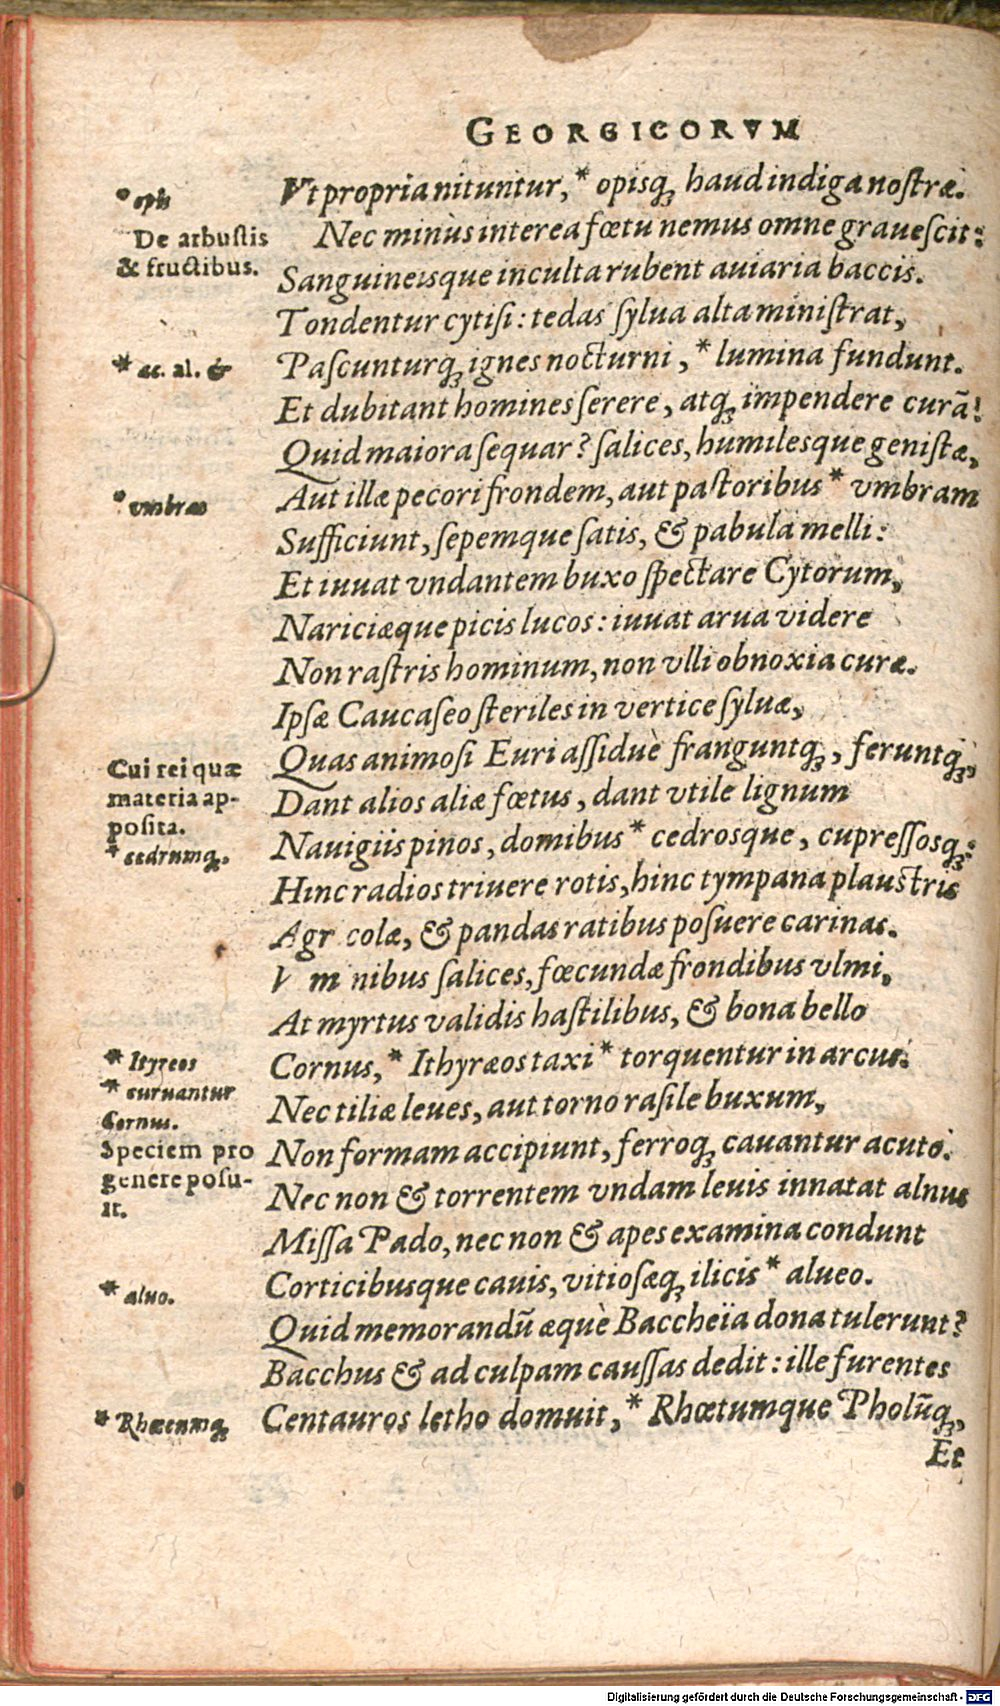 GEORGICORVM
* opis
Vt propria nituntur, * opisq; haud indiga nostræ.
De arbustis
& fructibus.
Nec minùs interea fœtu nemus omne grauescit:
Sanguineisque inculta rubent auiaria baccis.
Tondentur cytisi: tedas sylua alta ministrat,
* ac. al. &
Pascunturq; ignes nocturni, * lumina fundunt.
Et dubitant homines serere, atq; impendere curā!
Quid maiora sequar? salices, humilesque genistæ,
* vmbras
Aut illæ pecori frondem, aut pastoribus * vmbram
Sufficiunt, sepemque satis, & pabula melli:
Et iuuat vndantem buxo spectare Cytorum,
Nariciæque picis lucos: iuuat arua videre
Non rastris hominum, non vlli obnoxia curæ.
Ipsæ Caucaseo steriles in vertice syluæ,
Cui rei quæ
materia ap-
posita.
Quas animosi Euri assiduè franguntq;, feruntq;,
Dant alios aliæ fœtus, dant vtile lignum
* cedrumq;.
Nauigiis pinos, domibus * cedrosque, cupressosq;:
Hinc radios triuere rotis, hinc tympana plaustris
Agr colæ, & pandas ratibus posuere carinas.
V m nibus salices, fœcundæ frondibus vlmi,
At myrtus validis hastilibus, & bona bello
* Ityreos
* curuantur
Cornus.
Cornus, * Ithyræos taxi * torquentur in arcus.
Nec tiliæ leues, aut torno rasile buxum,
Speciem pro
genere posu-
it.
Non formam accipiunt, ferroq; cauantur acuto.
Nec non & torrentem vndam leuis innatat alnus
Missa Pado, nec non & apes examina condunt
* aluo.
Corticibusque cauis, vitiosæq; ilicis * alueo.
Quid memorandū æquè Baccheïa dona tulerunt?
Bacchus & ad culpam caussas dedit: ille furentes
* Rhœcumq;
Centauros letho domuit, * Rhœtumque Pholūq;,
Et
Digitalisierung gefördert durch die Deutsche Forschungsgemeinschaft - DFG